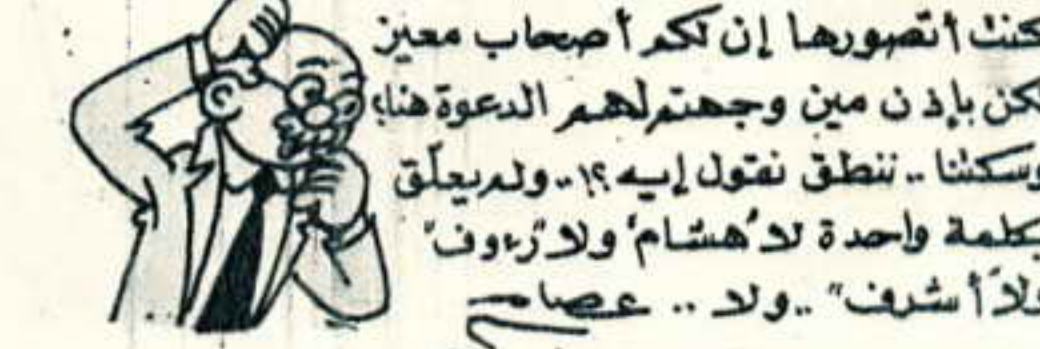 كنت أتصورها إن لكم أصحاب معيز
لكن بإذن مين وجهتم لهم الدعوة هنا؟
وسكتنا .. ننطق نقول إيه ؟! .. ولم يعلّق
بكلمة واحدة لا "هشام" ولا "رءوف"
ولا "أشرف" .. ولا .. عصام